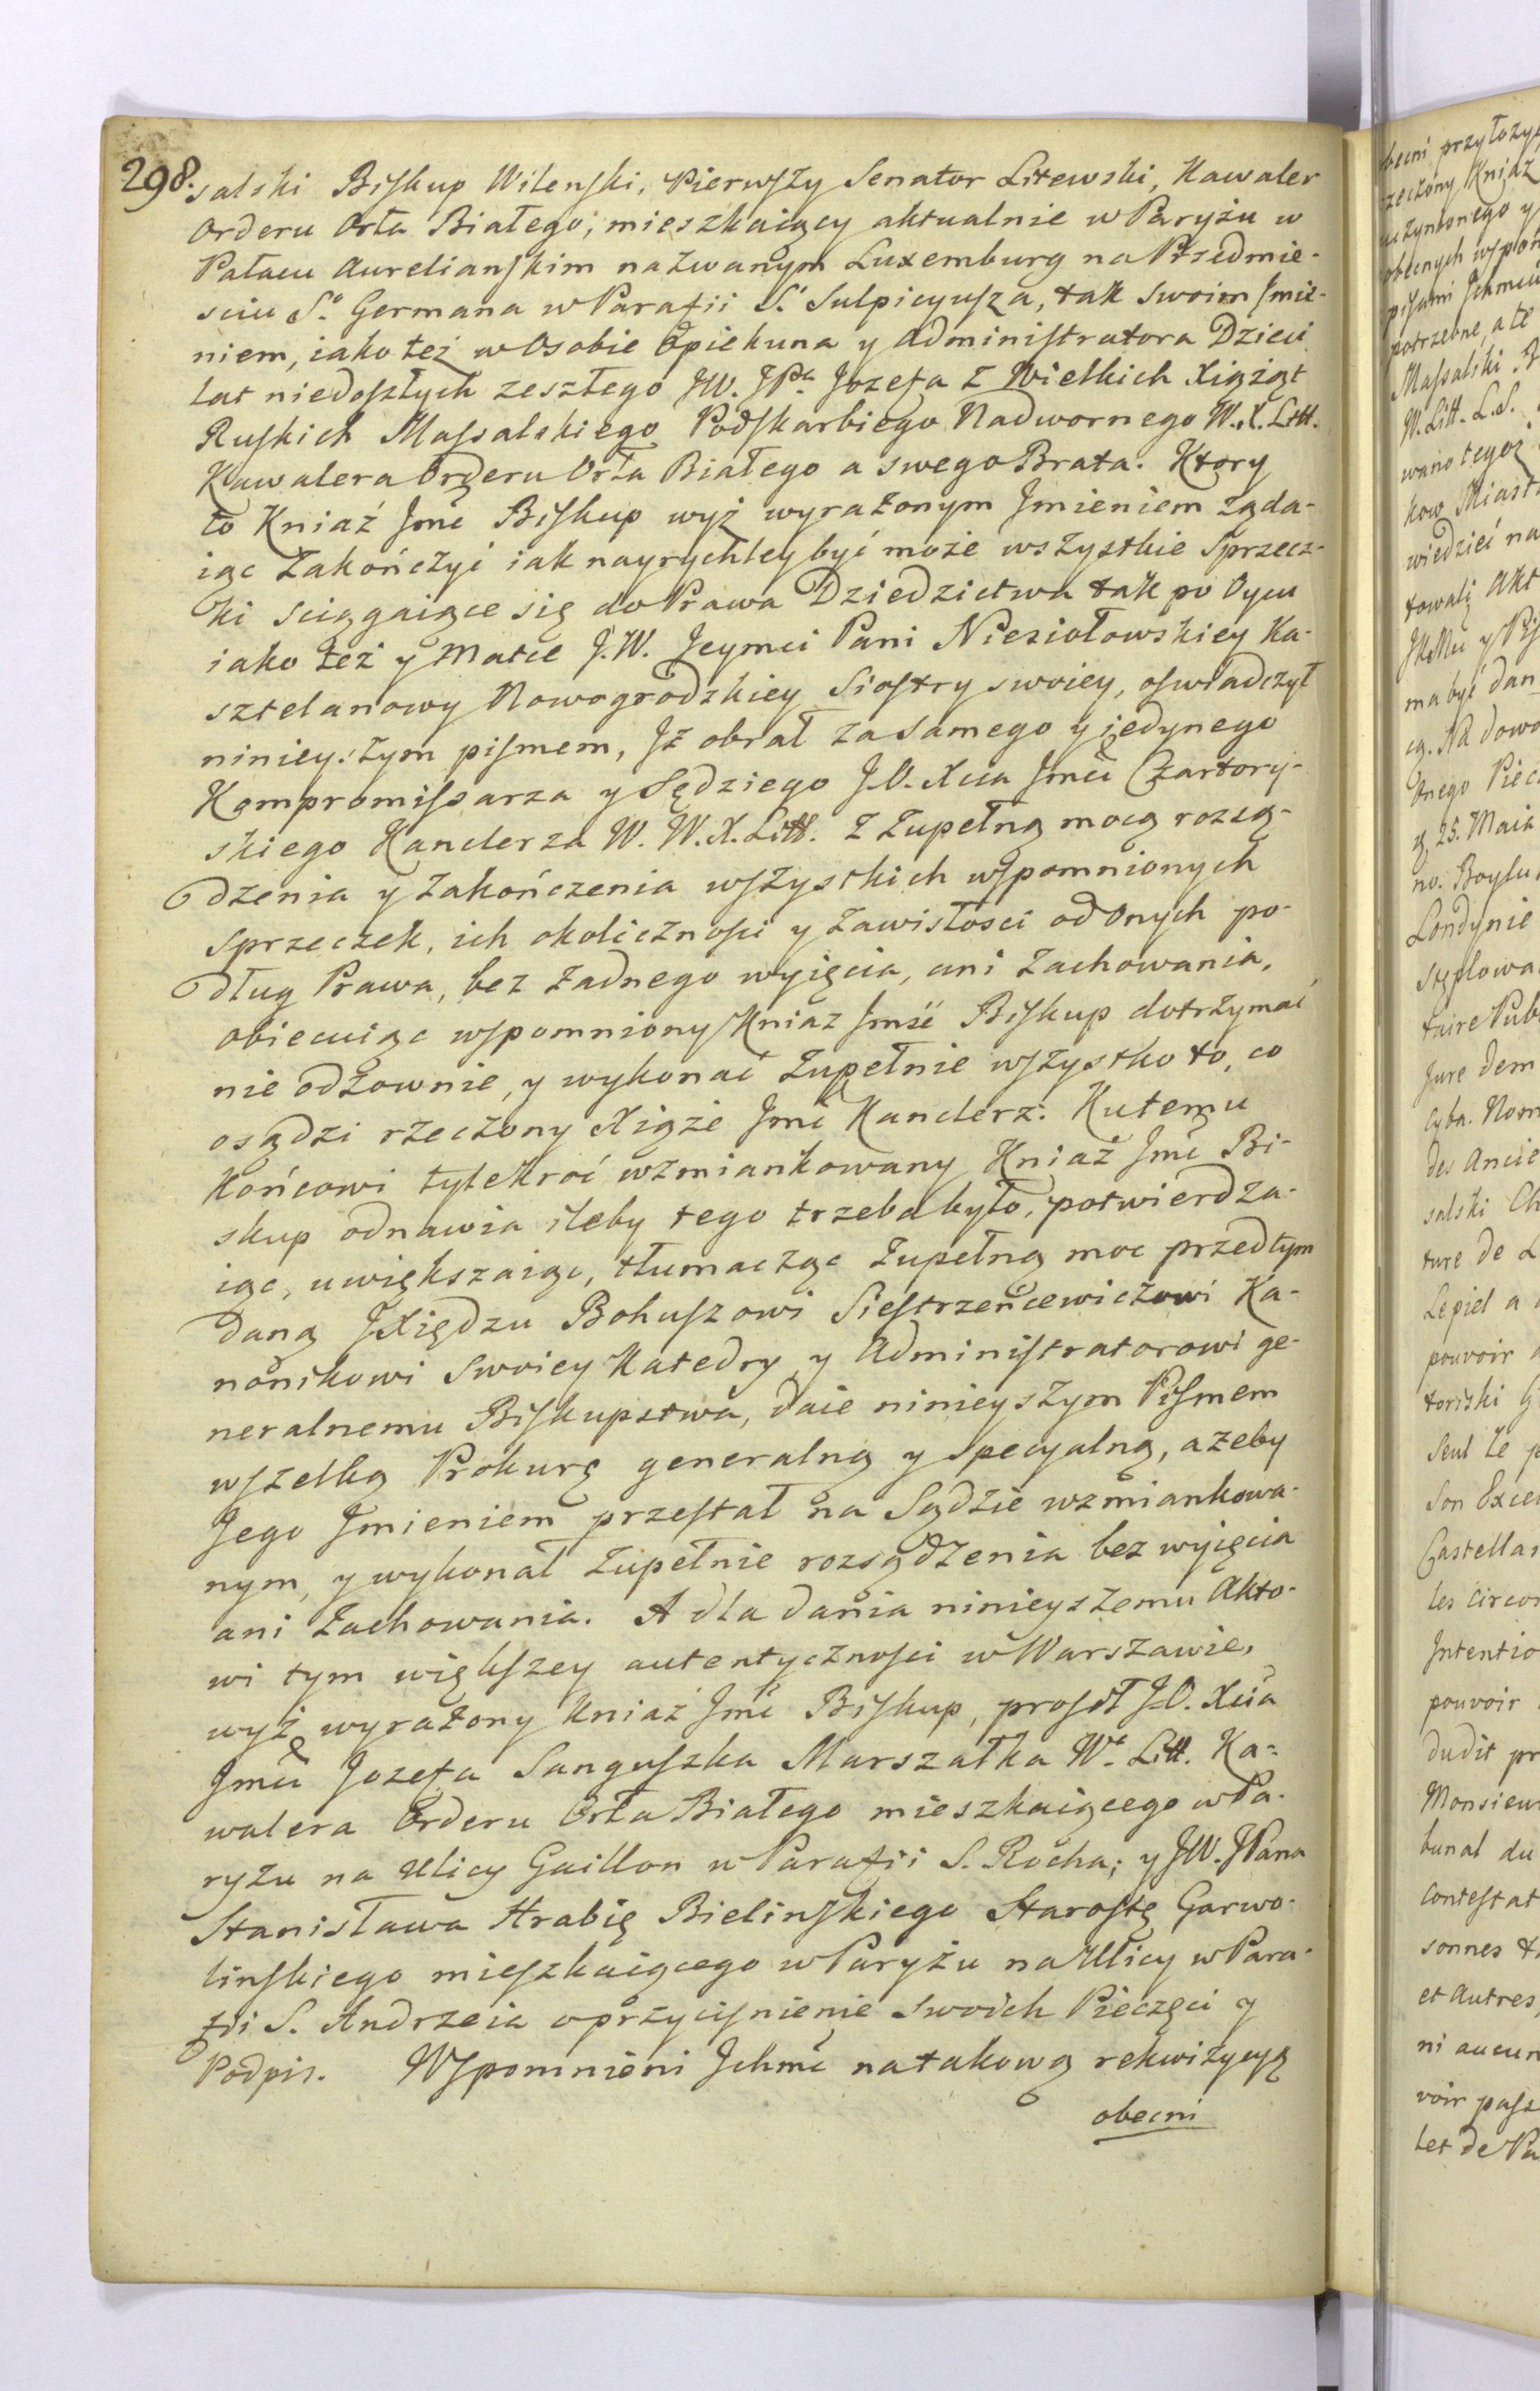 298.
salski Biſkup Wilenſki, Pierwſzy Senator Litewski, Kawaler
Orderu Orła Białego; mieszkaiący aktualnie w Paryżu w
Pałacu Aurelianſkim nazwanym Luxemburg na Przedmie-
sciu S.º Germana w Parafii S. Sulpicyuſza, tak swoim Jmie-
niem, iako też w Osobie Opiekuna y Adminiſtratora Dzieci
lat niedoſzłych zeszłego JW. JPa. Jozefa z Wielkich Xiążąt
Ruſkich Maſsalskiego Podſkarbiego Nadwornego W.X.Litt.
Kawalera Orderu Orła Białego a swego Brata. Ktory
to Kniaź Jmć Biſkup wyż wyrażonym Jmieniem żąda-
iąc zakończyć iak nayrychley być może wszystkie Sprzecz-
ki sciągaiące się do Prawa Dziedzictwa tak po Oycu
iako też y Matce J.W. Jeymci Pani Niesiołowskiey Ka-
sztelanowy Nowogrodzkiey Siostry swoiey, oſwiadczył
ninieyszym piſmem, Jż obrał za samego y jedynego
Kompromiſsarza y Sędziego J.O. Xcia Jmci Czartory-
skiego Kanclerza W. W.X.Litt. z zupełną mocą rozsą-
dzenia y zakończenia wſzystkich wſpomnionych
sprzeczek, ich okolicznoſci y zawisłosci od onych po-
dług Prawa, bez żadnego wyięcia, ani zachowania,
obiecuiąc wſpomniony Kniaz Jmść Biſkup dotrzymać
nie odzownie, y wykonać zupełnie wſzystko to, co
osądzi rzeczony Xiąże Jmć Kanclerz. Ku temu
końcowi tylekroć wzmiankowany Kniaź Jmć Bi-
skup odnawia ileby tego trzeba było, potwierdza-
iąc, uwiększaiąc, tłumacząc zupełną moc przedtym
daną JXiędzu Bohuſzowi Sieſtrzeńcewiczowi Ka-
nonikowi swoiey Katedry y Adminiſtratorowi ge-
neralnemu Biſkupstwa, daie ninieyszym Piſmem
wſzelką Prokurę generalną y specyalną, ażeby
Jego Jmieniem przeſtał na Sądzie wzmiankowa-
nym, y wykonał zupełnie rozsądzenia bez wyięcia
ani zachowania. A dla dania ninieyszemu Akto-
wi tym więkſzey autentycznoſci w Warszawie,
wyż wyrażony Kniaź Jmć Biſkup, proſił J.O. Xcia
Jmci Jozefa Sanguſzka Marszałka W. Litt. Ka-
walera Orderu Orła Białego mieszkaiącego w Pa-
ryżu na Ulicy Gaillon w Parafii S. Rocha; y JW. JPana
Stanisława Hrabię Bielinſkiego Staroſtę Garwo-
linſkiego mieſzkaiącego w Paryżu na Ulicy w Para-
fii S. Andrzeia o przyciſnienie swoich Pieczęci y
Podpis. Wſpomnieni Jchmć na takową rekwizycyą
obecni